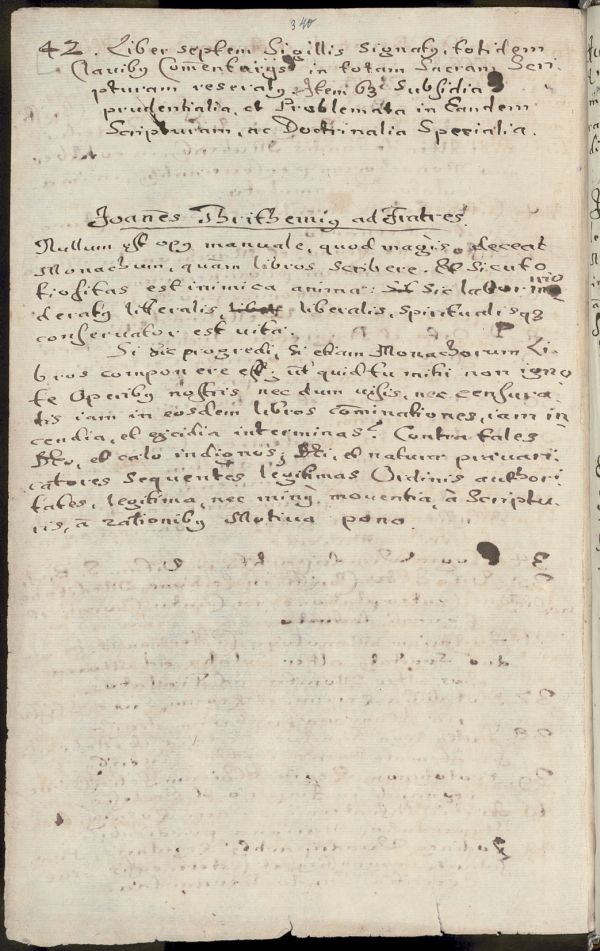 340
42. Liber septem Sigillis Signatq, totidem
Clavibq Com̄entarijs in totam Sacram Scri
pturam reseratq. Item 63 Subsidia
prudentialia, et Problemata in Eandem
Scripturam, ac Doctrinalia Specialia.
Joañes Trithemiq ad Fratres.
Nullum est opq manuale, quod magis deceat
Monachum, quàm libros scribere. Et sicut o
tiositas est inimica animæ: sic labor im̄o
deratq litteralis, liberalis, spiritualisqз
conservator est vitæ.
Si sic progredi, si etiam Monachorum Li
bros componere est; ut quid tu mihi non igno
te Operibq nostris nec dum visis, nec censura
tis iam in eosdem libros com̄inationes, iam in
cendia, et excidia interminas? Contra tales
et cælo indignos, et naturæ prævari
catores sequentes legitimas Ordinis authori
tates, legitima, nec minq moventia, à Scriptu
ris, à rationibq Motiva pono.